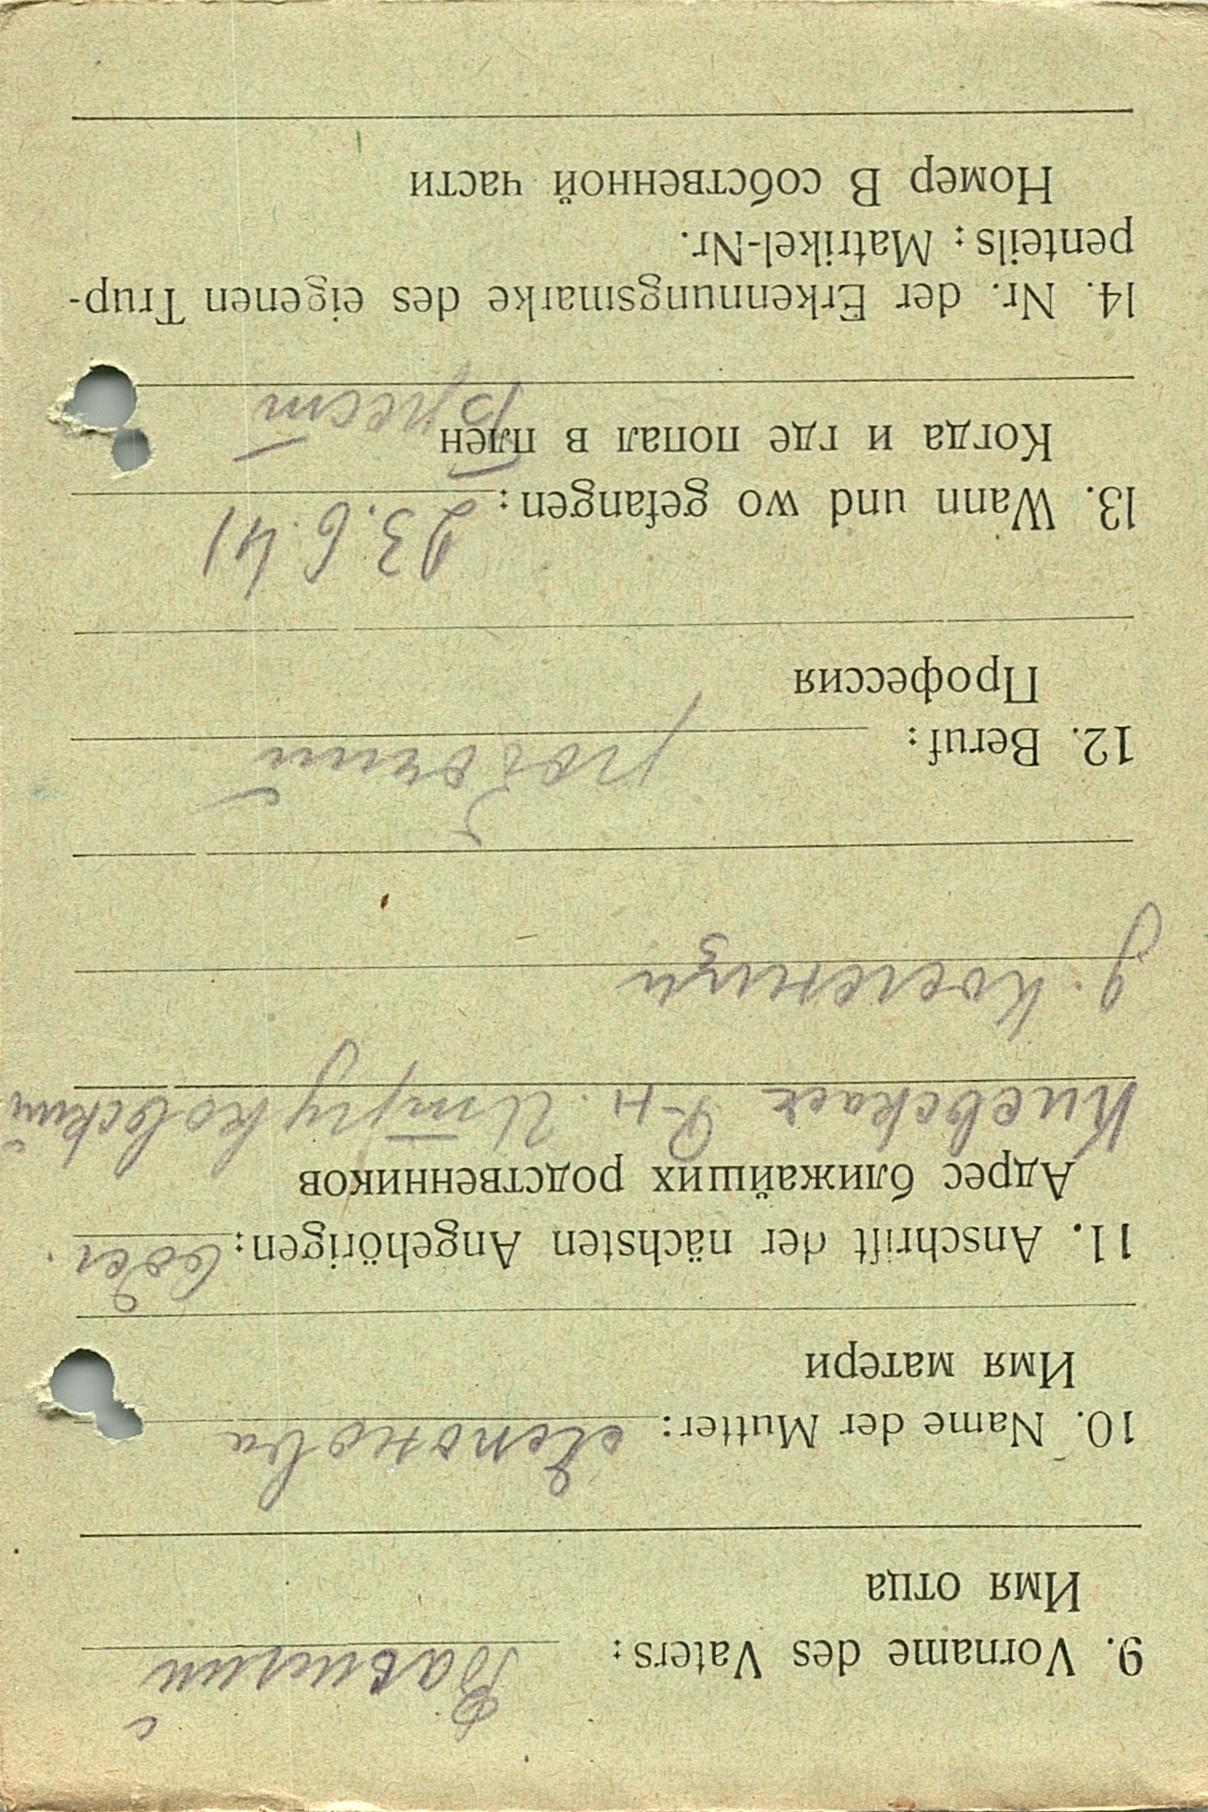 9. Vorname des Vaters: Василий
Имя отца
10. Name der Mutter:
Имя матери
11. Anschrift der nächsten Angehörigen: обл.
Адрес ближайших родственников
Киевская Р-н.
д.
12. Beruf: рабочий
Профессия
13. Wann und wo gefangen: 23.6.41
Когда и где попал в плен Брест
14. Nr. der Erkennungsmarke des eigenen Trup-
penteils; Matrikel-Nr.
Номер В собственной части